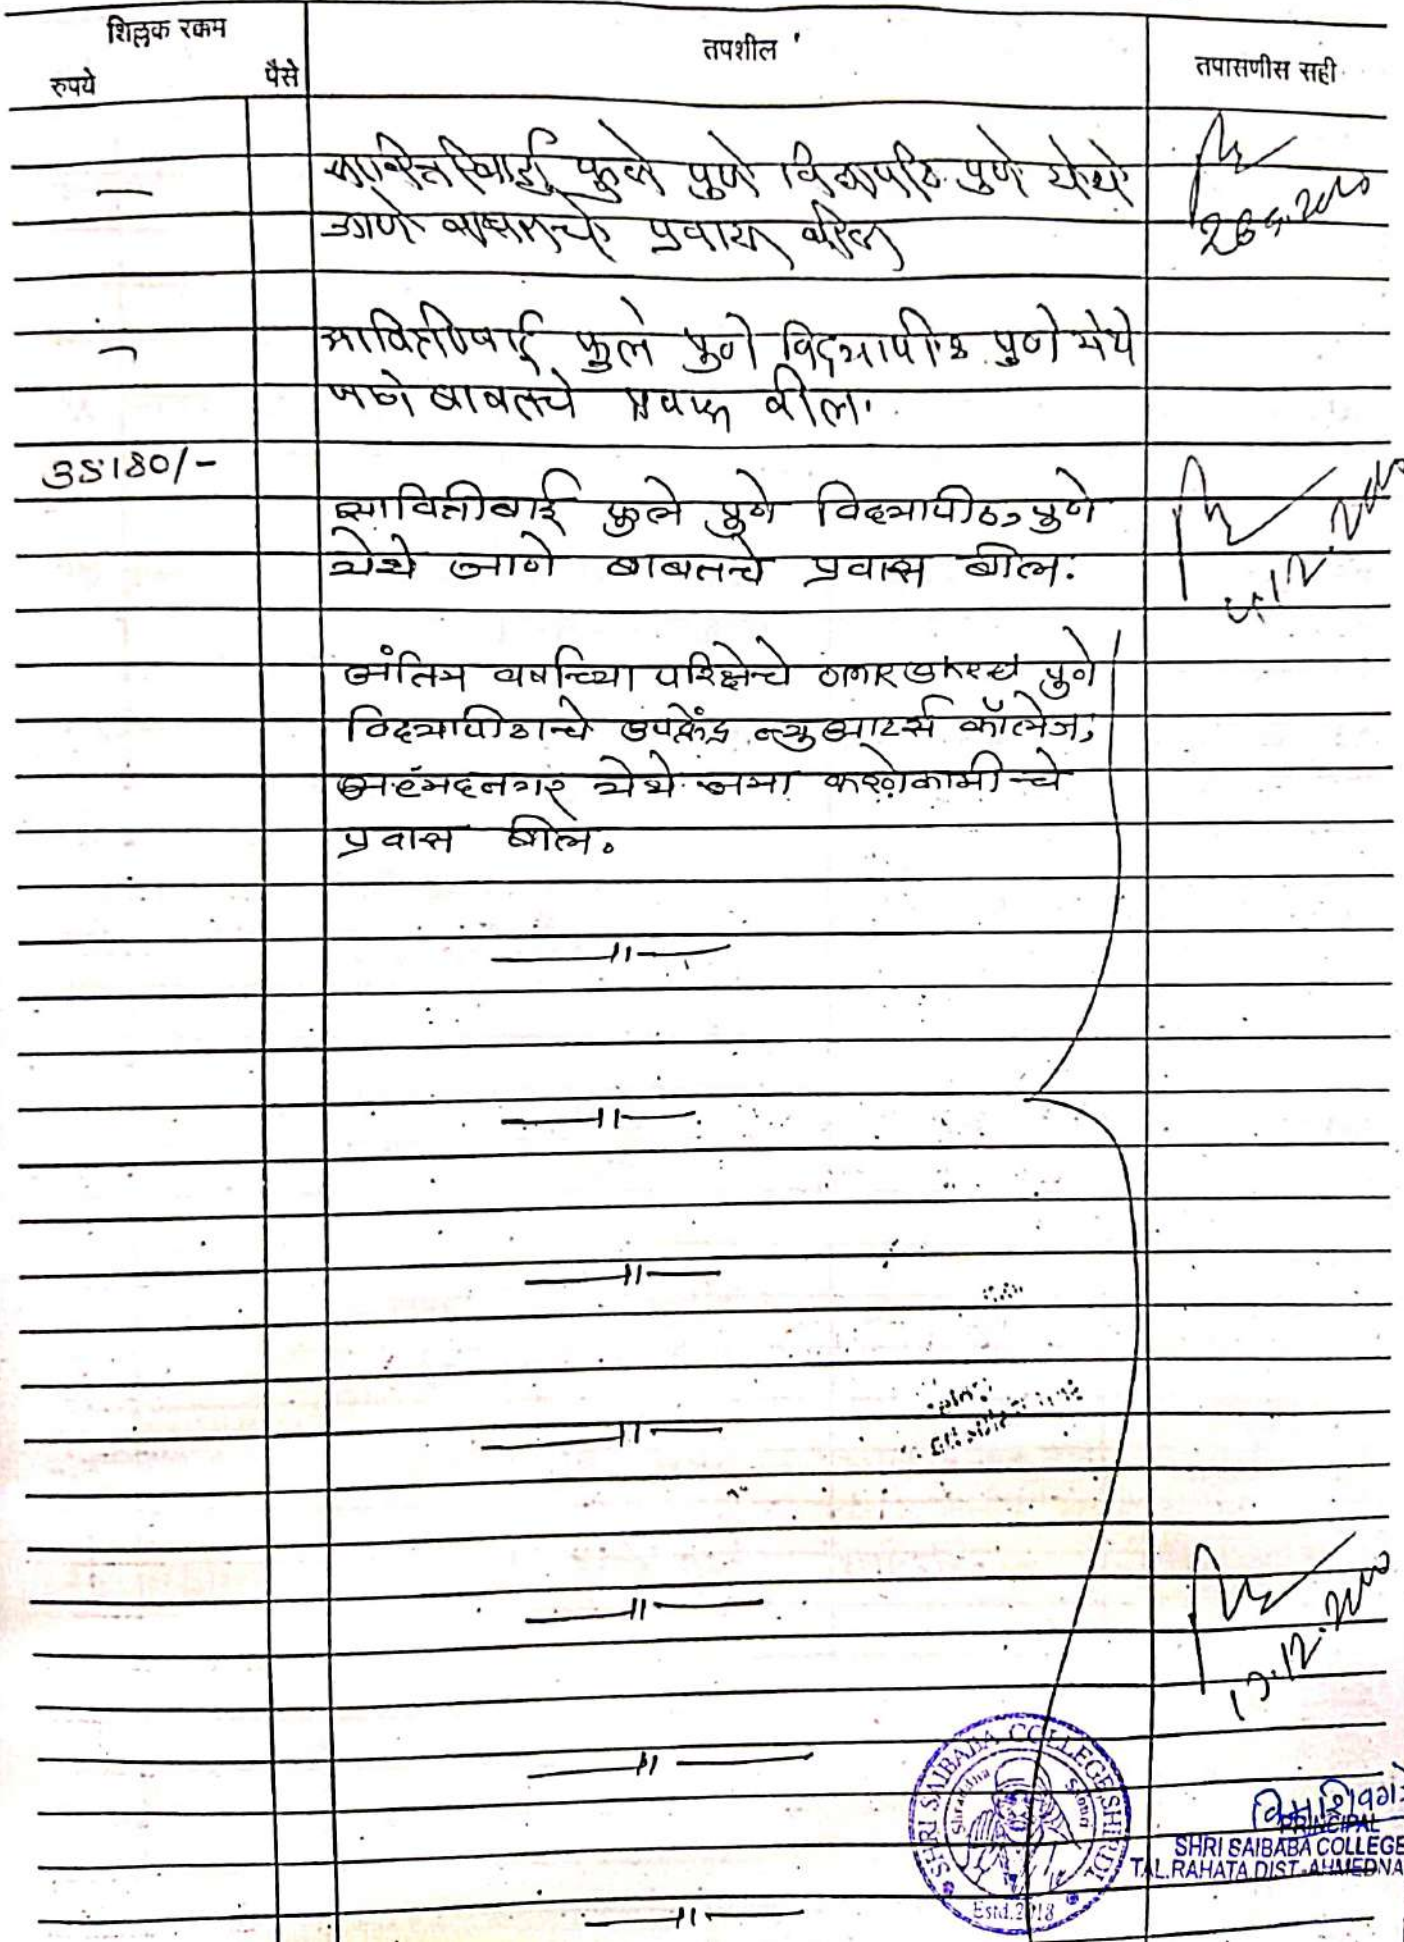 शिल्लक रक्कम
रुपये
पैसे
तपशील
तपासणीस सही
सावित्रीबाई फुले पुणे विद्यापीठ पुणे येथे
जाणे बाबतचे प्रवास बील
—
सावित्रीबाई फुले पुणे विद्यापीठ पुणे येथे
जाणे बाबतचे प्रवास बील.
35180/-
सावित्रीबाई फुले पुणे विद्यापीठ, पुणे
येथे जाणे बाबतचे प्रवास बील.
अंतिम वर्षाच्या परिक्षेचे पुणे
विद्यापीठाचे उपकेंद्र न्यु आर्टस कॉलेज,
अहमदनगर येथे जमा करणेकामी चे
प्रवास बील.
—॥—
—॥—
—॥—
—॥—
—॥—
—॥—
—॥—
SHRI SAIBABA COLLEGE SHIRDI
Shraddha Saburi
Estd. 2018
PRINCIPAL
SHRI SAIBABA COLLEGE
TAL.RAHATA DIST-AHMEDNA